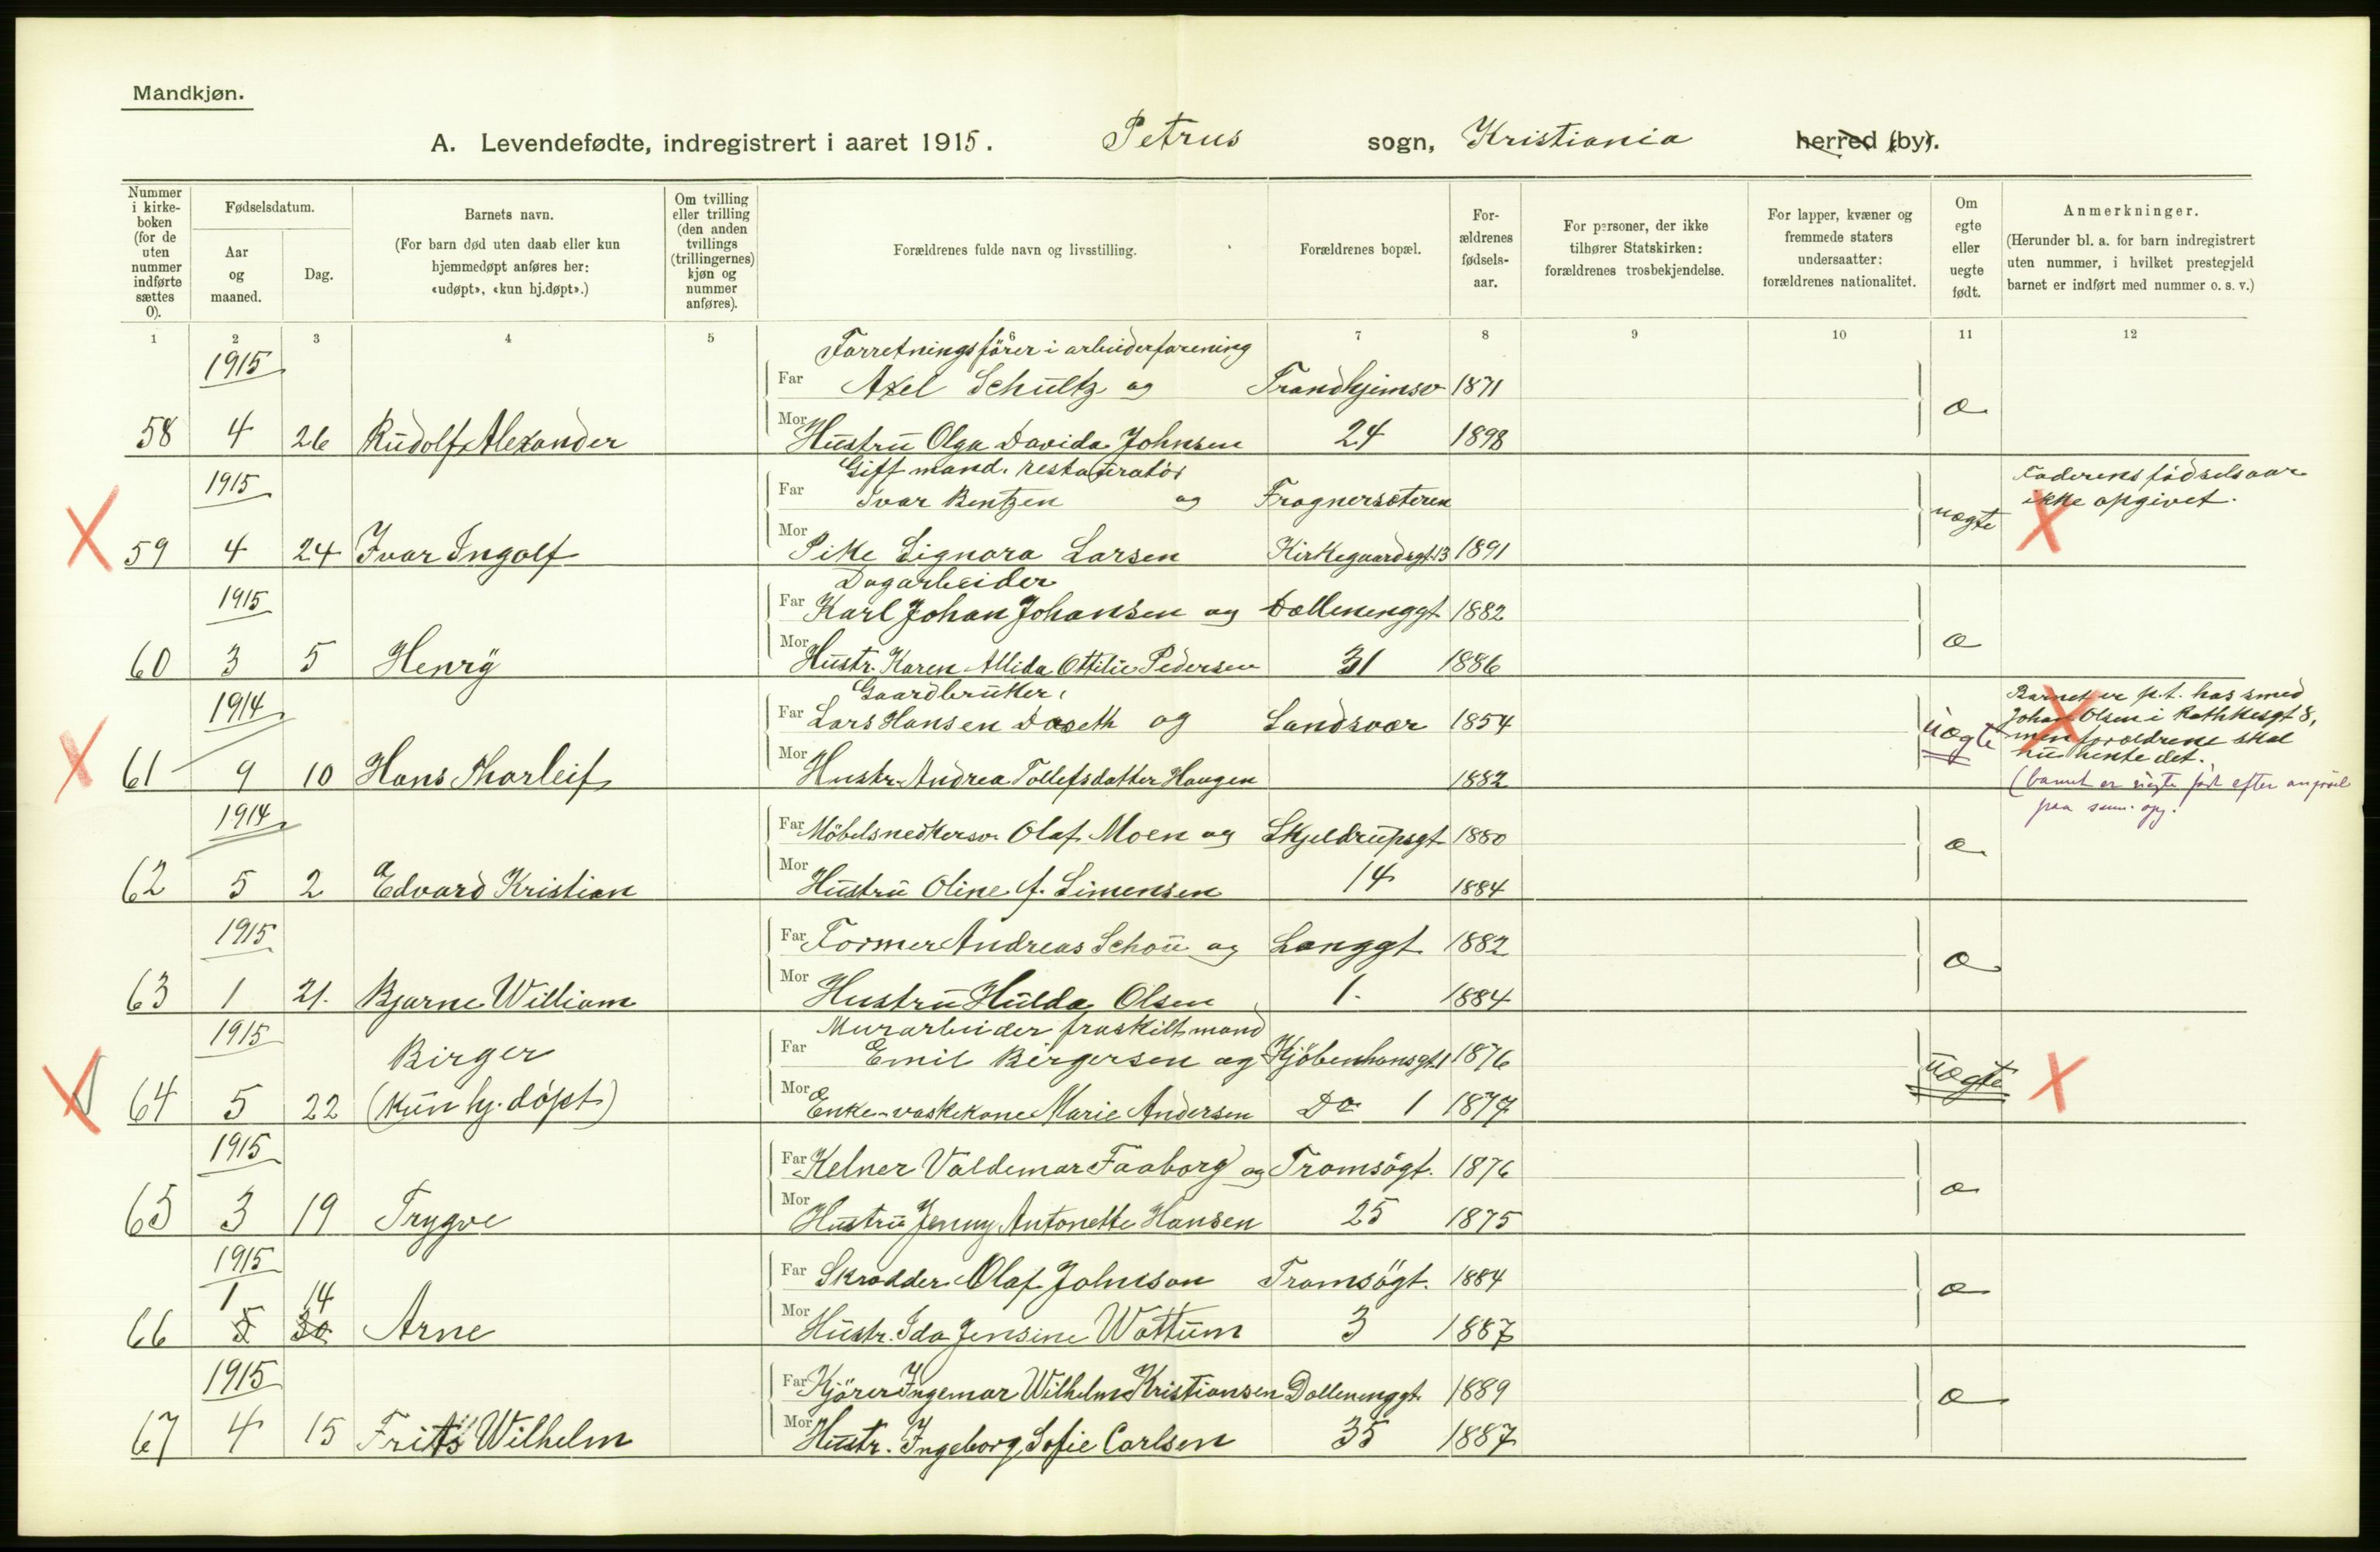 Mandkjøn.
A. Levendefødte, indregistrert i aaret 1915. Petrus sogn, Kristiania herred (by).
Nummer i kirke-boken (for de uten nummer indførte sættes 0).
Fødselsdatum.
Aar og maaned.
Dag.
Barnets navn.
(For barn død uten daab eller kun hjemmedøpt anføres her: «udøpt», «kun hj.døpt».)
Om tvilling eller trilling (den anden tvillings (trillingernes) kjøn og nummer anføres).
Forældrenes fulde navn og livsstilling.
Forældrenes bopæl.
For-ældrenes fødsels-aar.
For personer, der ikke tilhører Statskirken: forældrenes trosbekjendelse.
For lapper, kvæner og fremmede staters undersaatter: forældrenes nationalitet.
Om egte eller uegte født.
Anmerkninger.
(Herunder bl. a. for barn indregistrert uten nummer, i hvilket prestegjeld barnet er indført med nummer o. s. v.)
1 2 3 4 5 6 7 8 9 10 11 12
1915 Forretningsfører i arbeiderforening
Far Axel Schultz og Trondhjemsv 1871
58 4 26 Rudolf Alexander Mor Hustru Olga Davida Johnsen 24 1898 æ
1915 Gift mand. restauratør
Far Ivar Bentzen og Frognersæteren
Faderens fødselsaar
ikke opgivet.
59 4 24 Ivar Ingolf Mor Pike Signora Larsen Kirkegaardsgt. 13 1891 uægte
1915 Dagarbeider
Far Karl Johan Johansen og Dællenenggt 1882
60 3 5 Henrÿ Mor Hustr. Karen Allida Ottilie Pedersen 31 1886 æ
1914 Gaardbruker
Far Lars Hansen Daseth og Sandsvær 1854
61 9 10 Hans Thorleif Mor Hustr. Andrea Tollefsdatter Haugen 1882 uægte
Barnet er p.t. hos smed
Johan Olsen i Rathkesgt 8,
men forældrene skal
nu hente det.
(barnet er uegte født efter
1914
Far Møbelsnedkersv. Olaf Moen og Skjeldrupsgt 1880
62 5 2 Edvard Kristian Mor Hustru Oline f. Simensen 14 1884 æ
1915
Far Former Andreas Schou og Langgt 1882
63 1 21. Bjarne William Mor Hustru Hulda Olsen 1. 1884 æ
1915 Murarbeider fraskilt mand
Birger Far Emil Birgersen og Kjøbenhavnsgt. 1 1876
64 5 22 (kun hj. døpt) Mor Enke-vaskekone Marie Andersen Do 1 1877 uægte
1915
Far Kelner Valdemar Faaborg og Tromsøgt. 1876
65 3 19 Trygve Mor Hustru Jenny Antonette Hansen 25 1875 æ
1915
Far Skrædder Olaf Johnson Tromsøgt. 1884
1 14
66 5 30 Arne Mor Hustr. Ida Jensine Wattum 3 1887 æ
1915
Far Kjører Ingemar Wilhelm Kristiansen Dællenenggt 1889
67 4 15 Frits Wilhelm Mor Hustr. Ingeborg Sofie Carlsen 35 1887 æ